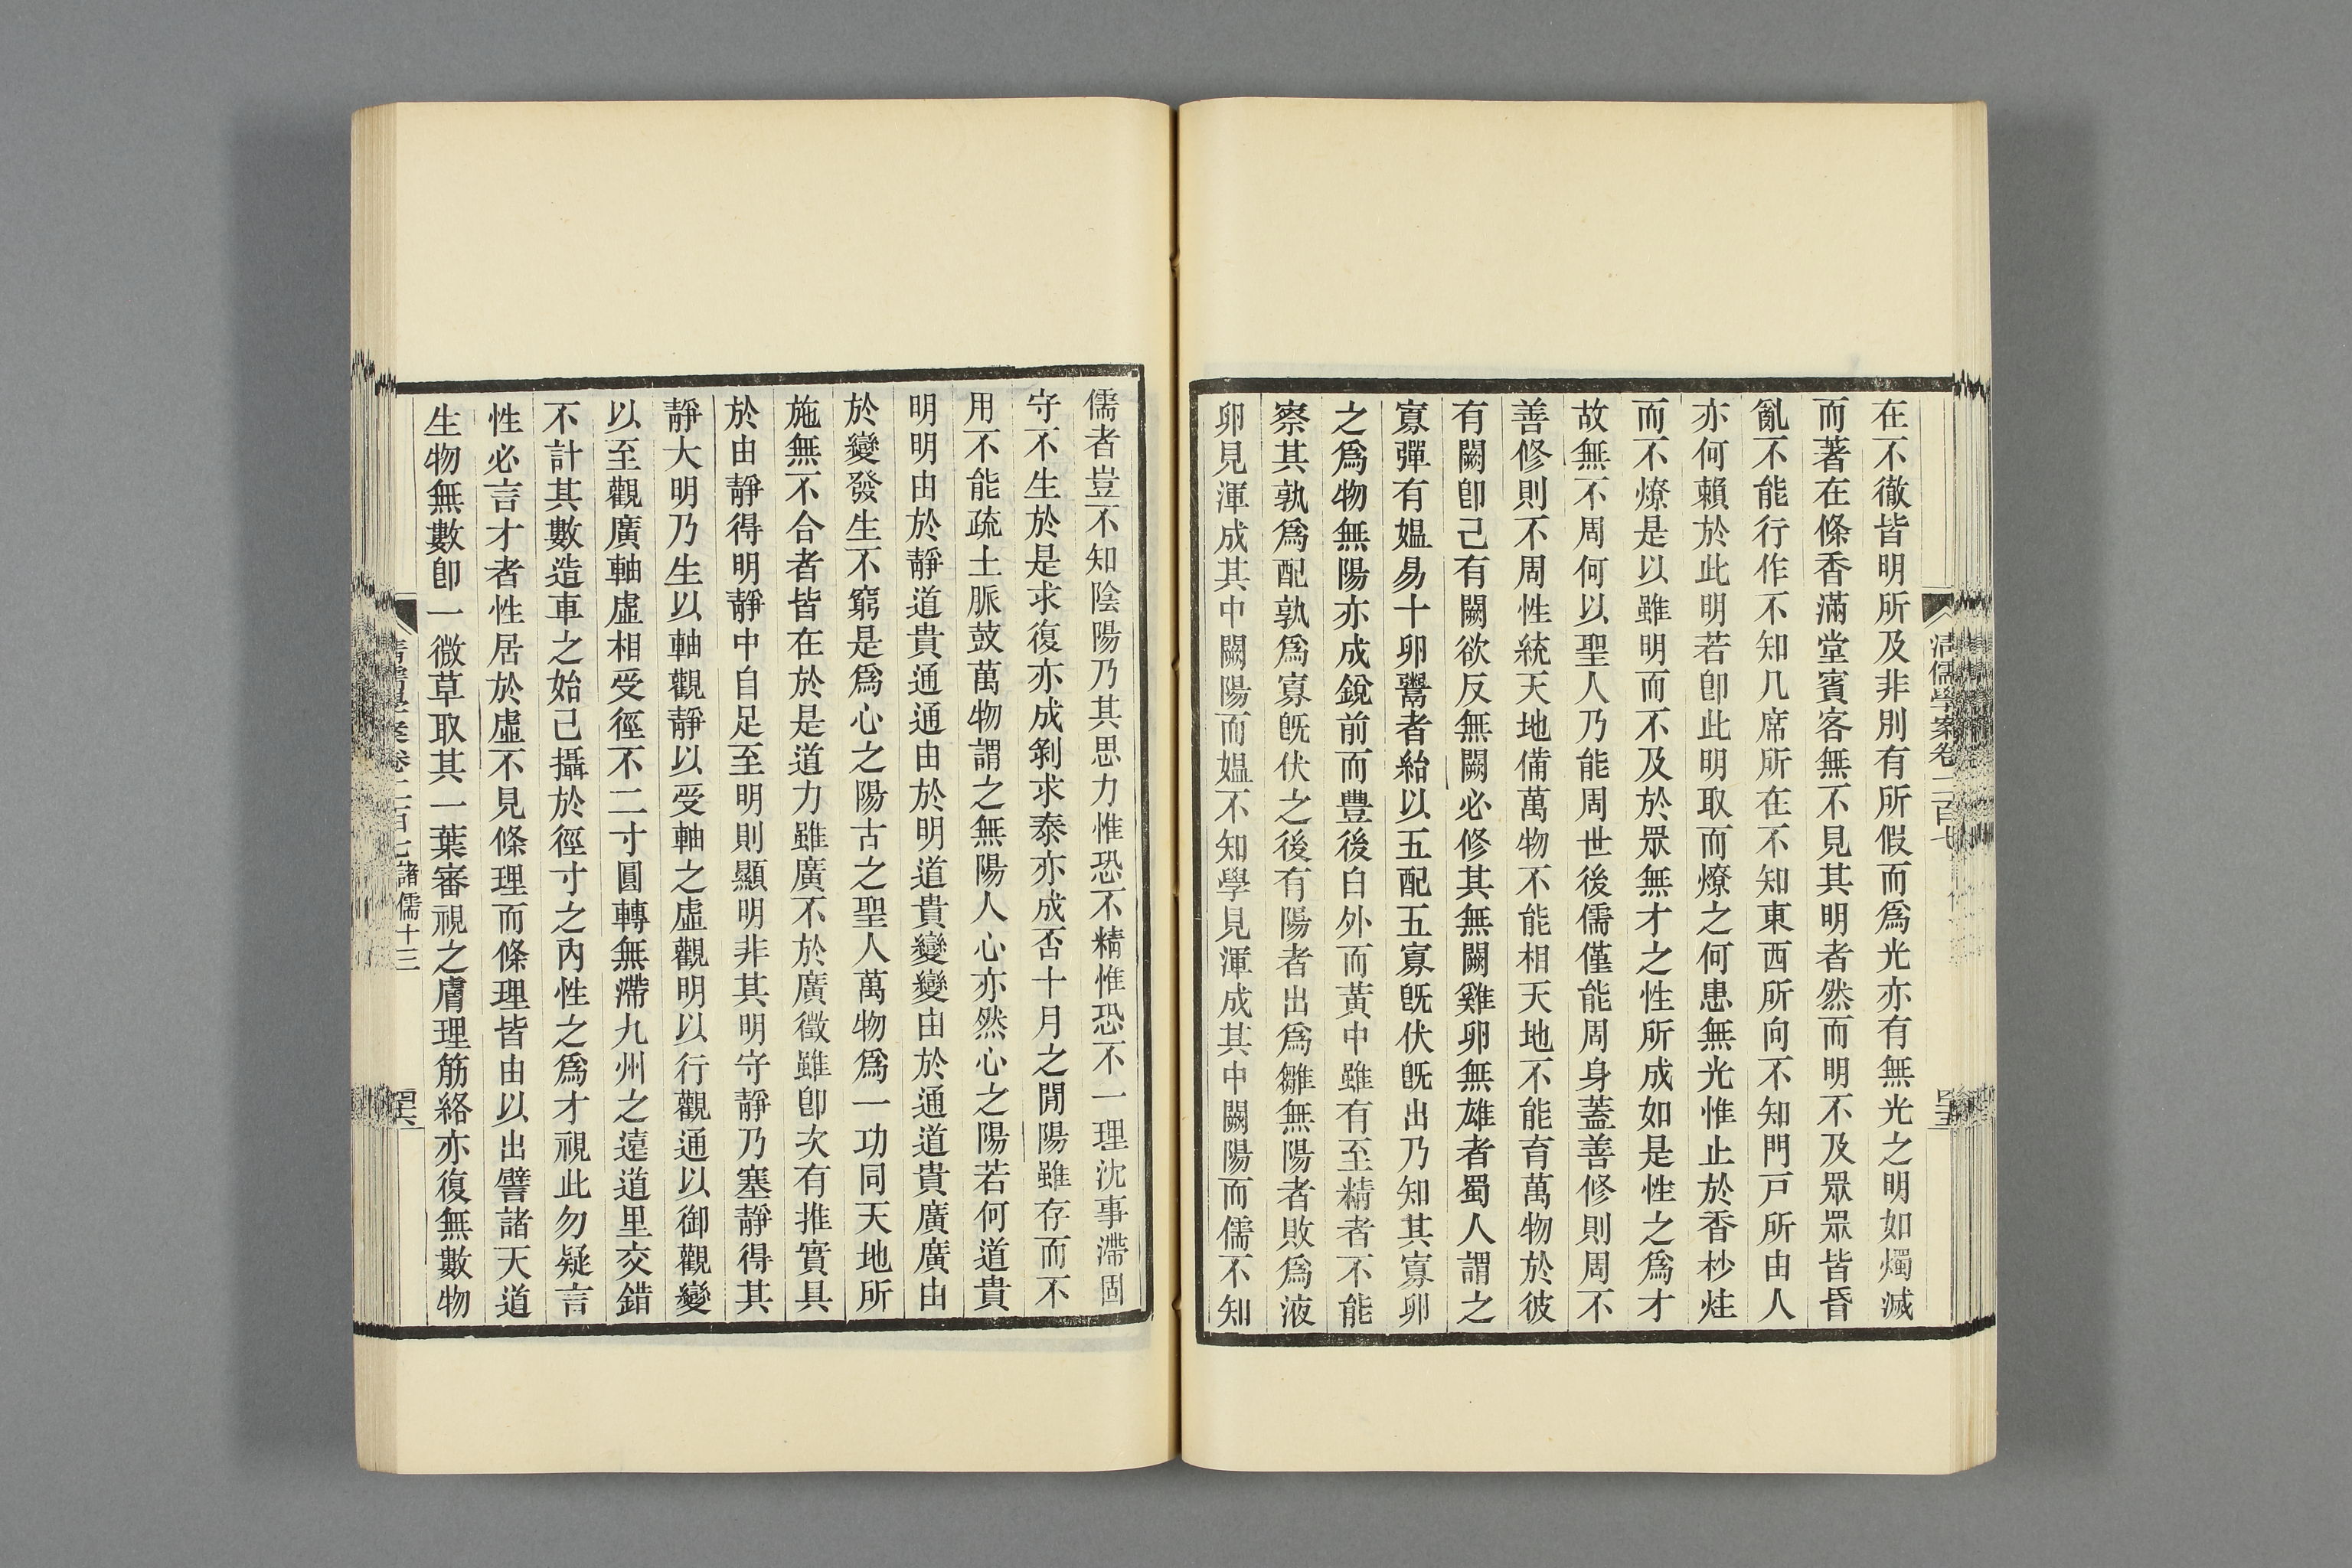 在不徹皆明所及非別有所假而爲光亦有無光之明如燭滅
而著在條香滿堂賓客無不見其明者然而明不及眾眾皆昏
亂不能行作不知几席所在不知東西所向不知門戸所由人
亦何賴於此明若卽此明取而燎之何患無光惟止於香杪炷
而不燎是以雖明而不及於眾無才之性所成如是性之爲才
故無不周何以聖人乃能周世後儒僅能周身蓋善修則周不
善修則不周性統天地備萬物不能相天地不能育萬物於彼
有闕卽己有闕欲反無闕必修其無闕雞卵無雄者蜀人謂之
寡彈有媼易十卵鬻者紿以五配五寡旣伏旣出乃知其寡卵
之爲物無陽亦成銳前而豐後白外而黃中雖有至精者不能
察其孰爲配孰爲寡旣伏之後有陽者出爲雛無陽者敗爲液
卵見渾成其中闕陽而媼不知學見渾成其中闕陽而儒不知
清儒學案卷二百七
儒者豈不知陰陽乃其思力惟恐不精惟恐不一理沈事滯固
守不生於是求復亦成剝求泰亦成否十月之閒陽雖存而不
用不能疏土脈鼓萬物謂之無陽人心亦然心之陽若何道貴
明明由於靜道貴通通由於明道貴變變由於通道貴廣廣由
於變發生不窮是爲心之陽古之聖人萬物爲一功同天地所
施無不合者皆在於是道力雖廣不於廣徵雖卽次有推實具
於由靜得明靜中自足至明則顯明非其明守靜乃塞靜得其
靜大明乃生以軸觀靜以受軸之虛觀明以行觀通以御觀變
以至觀廣軸虛相受徑不二寸圓轉無滯九州之遠道里交錯
不計其數造車之始已攝於徑寸之內性之爲才視此勿疑言
性必言才者性居於虛不見條理而條理皆由以出譬諸天道
生物無數卽一微草取其一葉審視之膚理筋絡亦復無數物
清儒學案卷二百七 諸儒十三